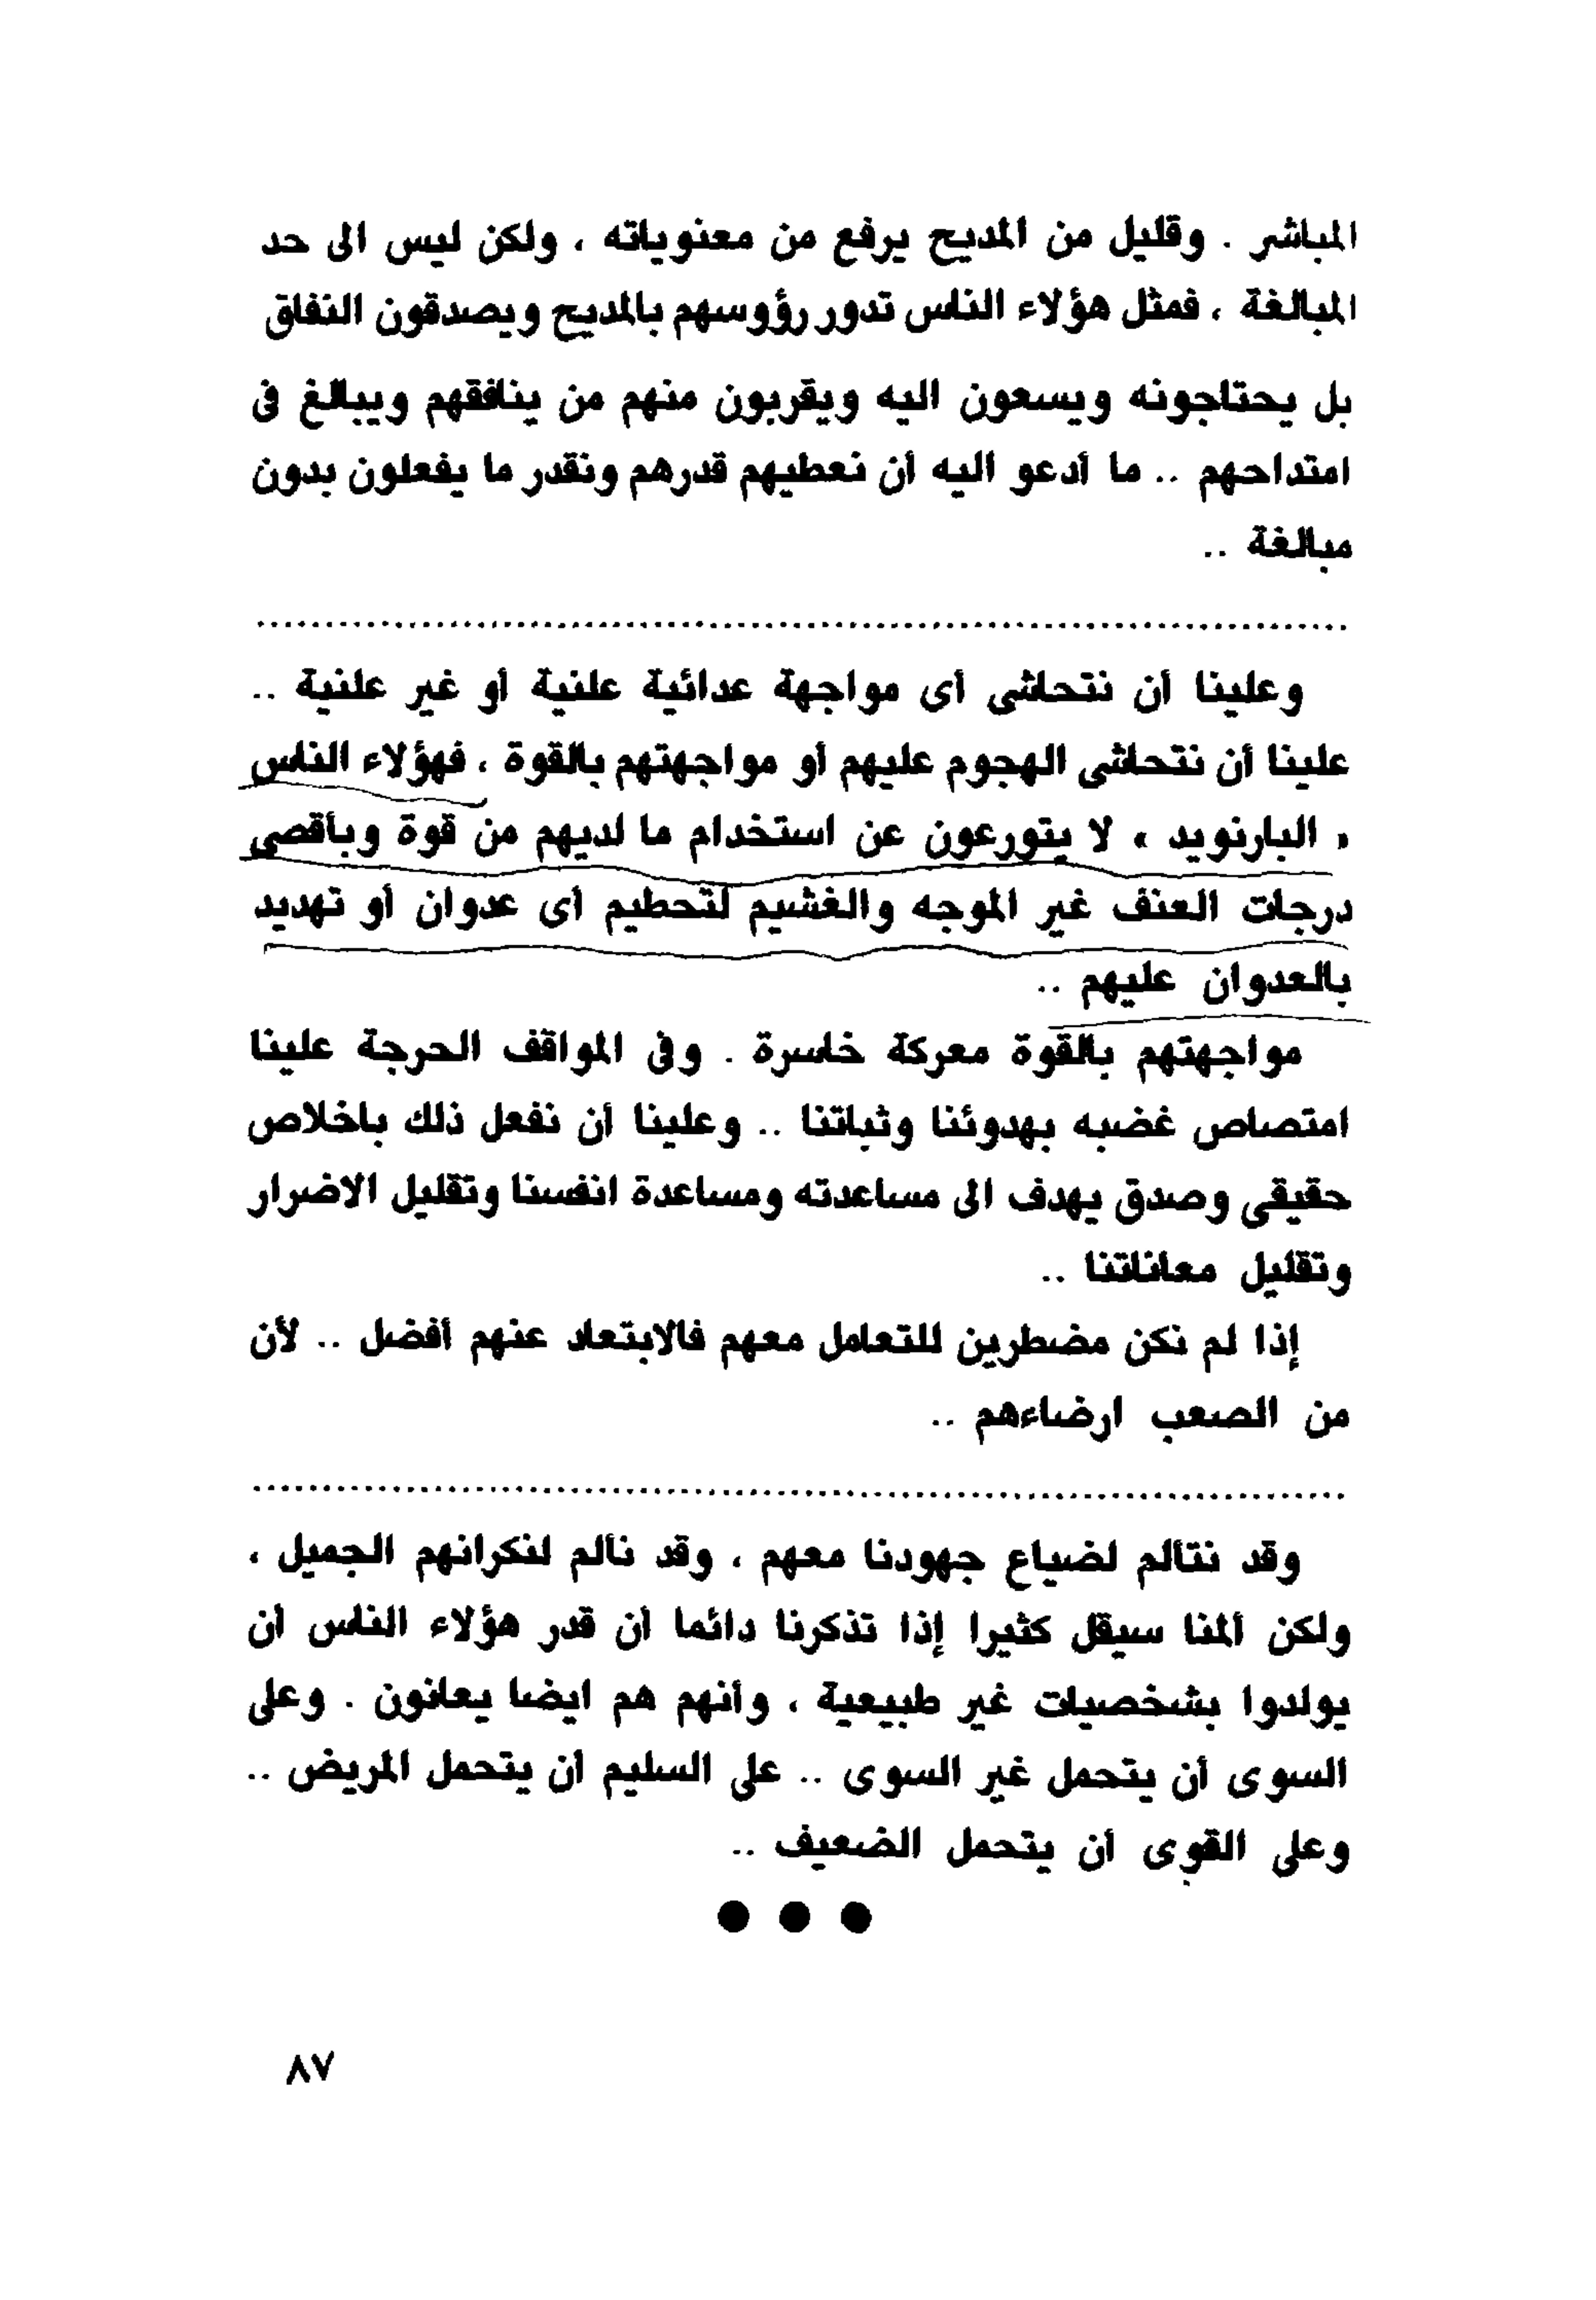 المباشر . وقليل من المديح يرفع من معنوياته ، ولكن ليس الى حد
المبالغة ، فمثل هؤلاء الناس تدور رؤوسهم بالمديح ويصدقون النفاق
بل يحتاجونه ويسعون اليه ويقربون منهم من ينافقهم ويبالغ فى
امتداحهم .. ما أدعو اليه أن نعطيهم قدرهم ونقدر ما يفعلون بدون
مبالغة ..
................................................................................
وعلينا أن نتحاشى أى مواجهة عدائية علنية أو غير علنية ..
علينا أن نتحاشى الهجوم عليهم أو مواجهتهم بالقوة ، فهؤلاء الناس
« البارنويد » لا يتورعون عن استخدام ما لديهم من قوة وبأقصى
درجات العنف غير الموجه والغشيم لتحطيم أى عدوان أو تهديد
بالعدوان عليهم ..
مواجهتهم بالقوة معركة خاسرة . وفى المواقف الحرجة علينا
امتصاص غضبه بهدوئنا وثباتنا .. وعلينا أن نفعل ذلك باخلاص
حقيقى وصدق يهدف الى مساعدته ومساعدة انفسنا وتقليل الاضرار
وتقليل معاناتنا ..
إذا لم نكن مضطرين للتعامل معهم فالابتعاد عنهم أفضل .. لأن
من الصعب ارضاءهم ..
................................................................................
وقد نتألم لضياع جهودنا معهم ، وقد نألم لنكرانهم الجميل ،
ولكن ألمنا سيقل كثيرا إذا تذكرنا دائما أن قدر هؤلاء الناس أن
يولدوا بشخصيات غير طبيعية ، وأنهم هم ايضا يعانون . وعلى
السوى أن يتحمل غير السوى .. على السليم أن يتحمل المريض ..
وعلى القوى أن يتحمل الضعيف ..
● ● ●
٨٧